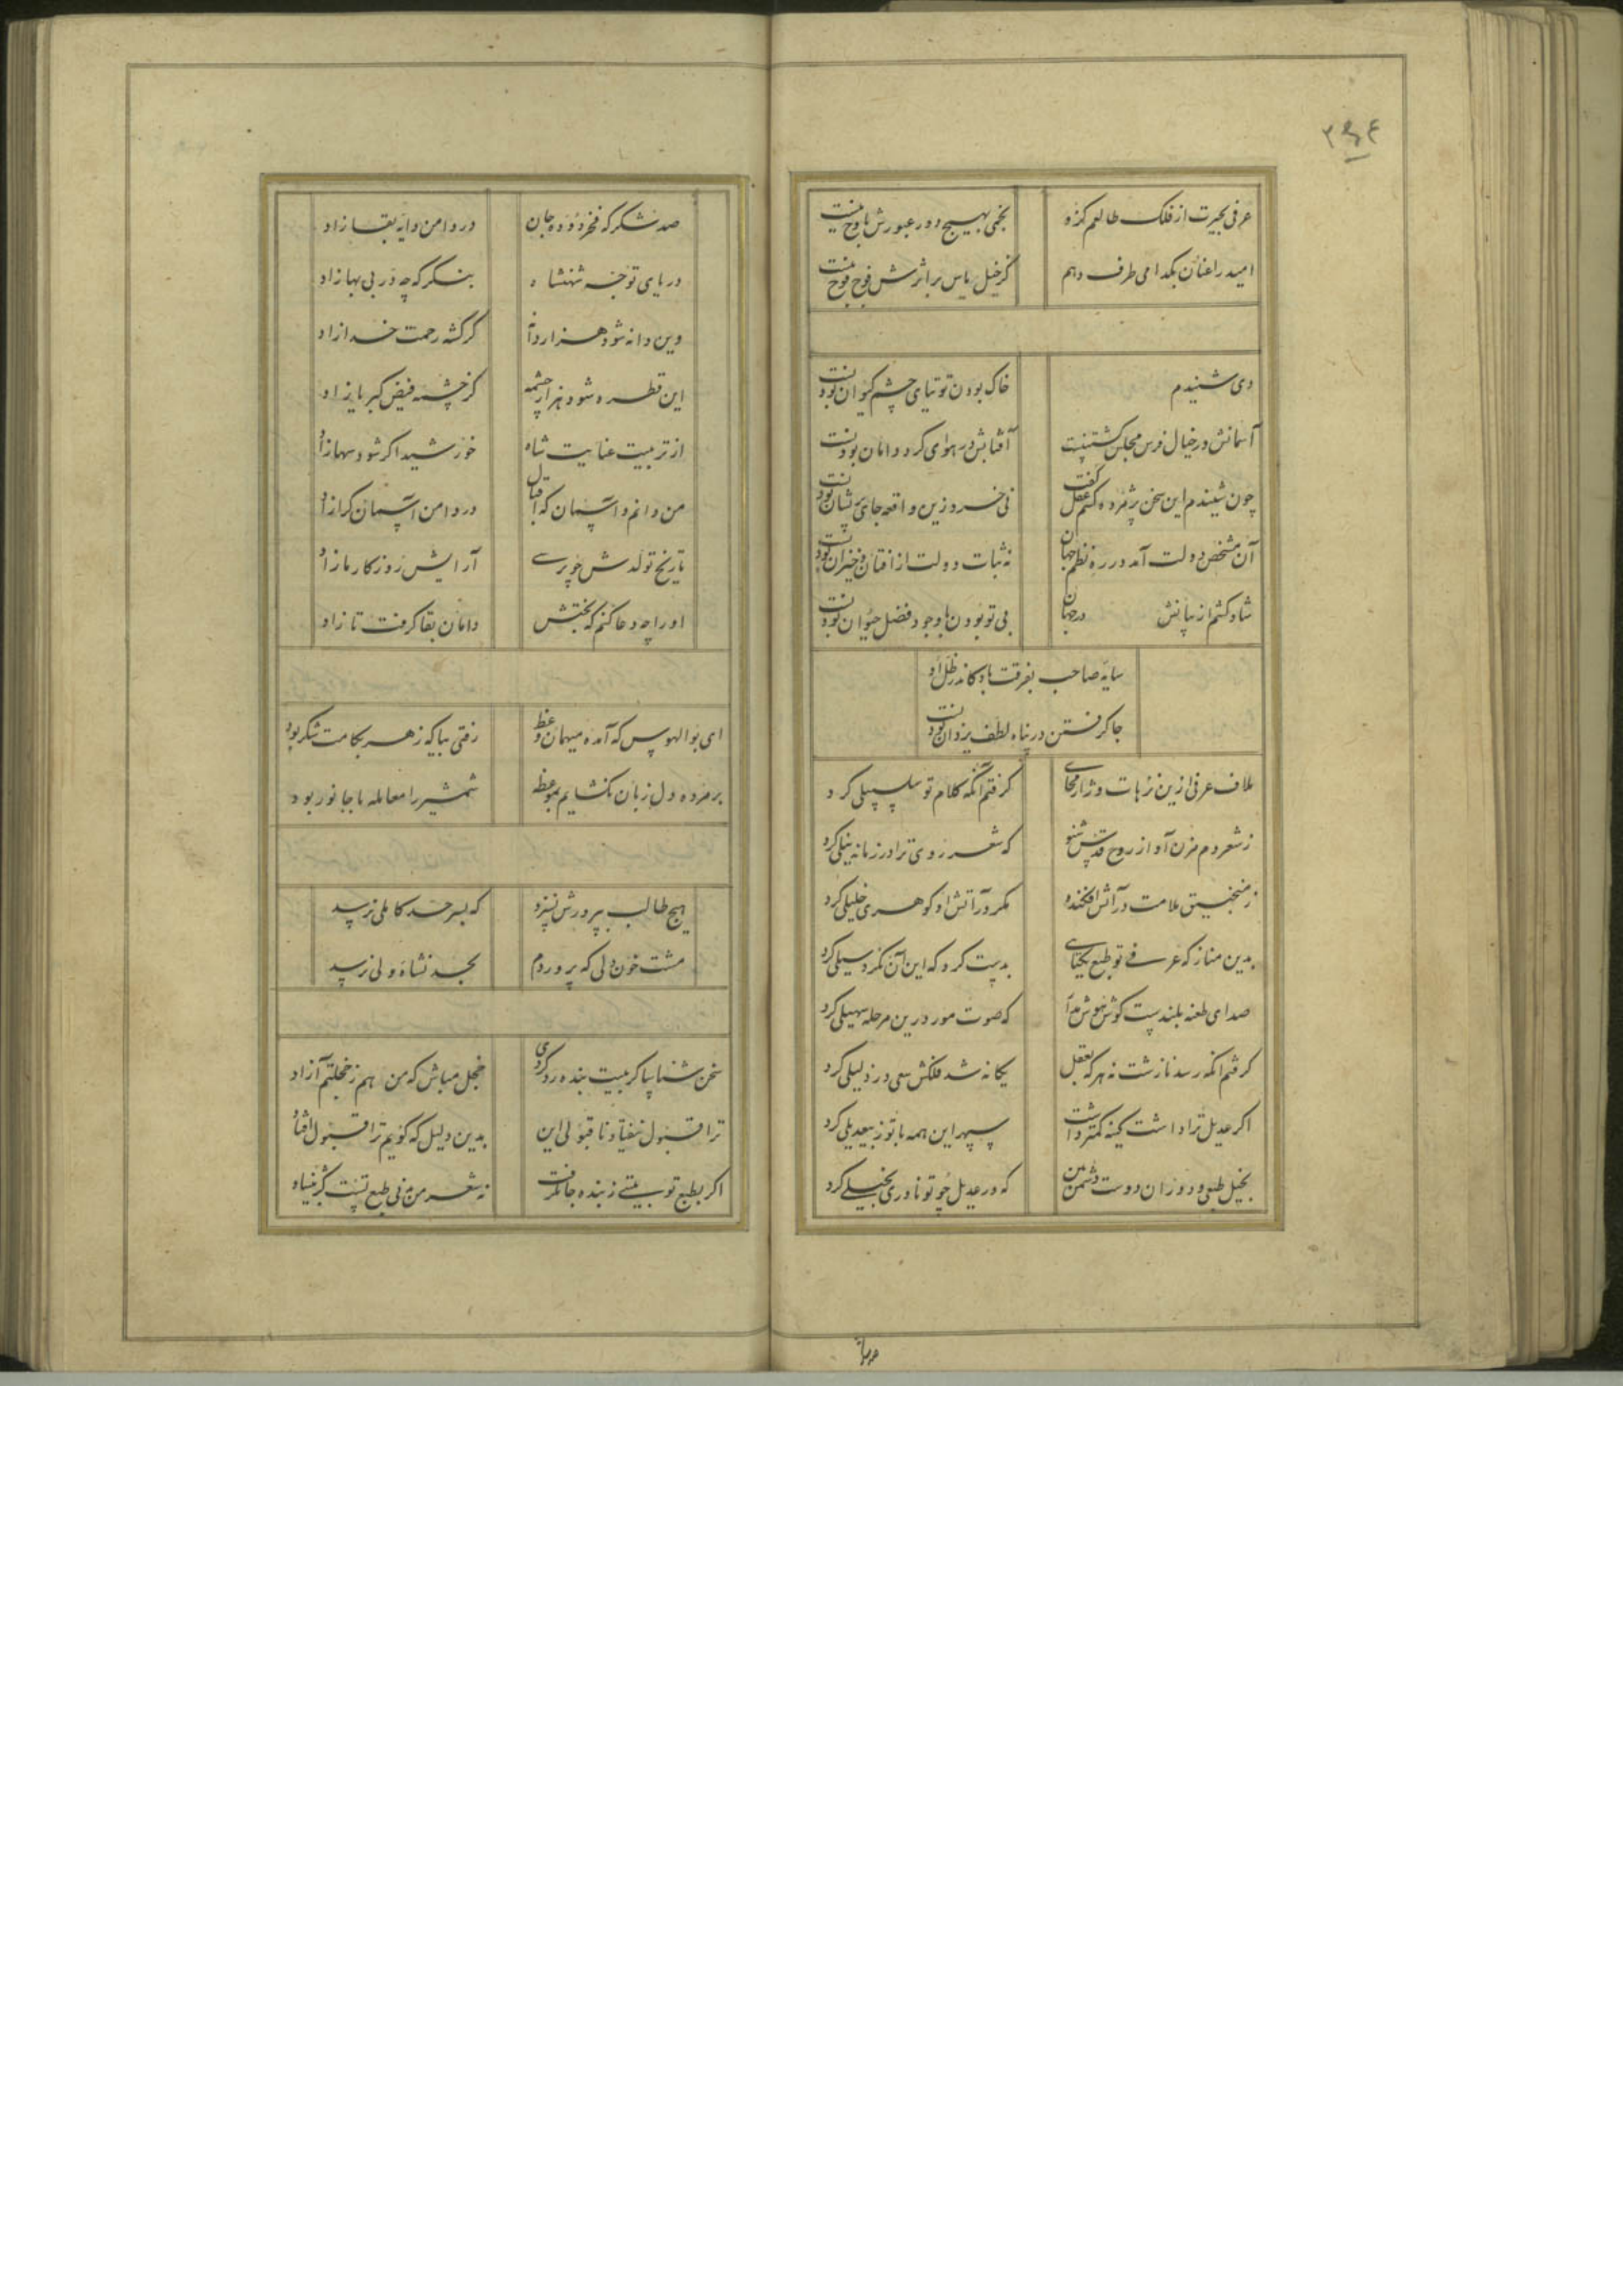 ۳۶۴
عرفی بحیرت از فلک طالعم کزو نجمی بهیچ دور عبورش باوج نیست
امید را عنان بکدامی طرف دهم کز خیل یاس بر اثرش فوج فوج نیست
دی شنیدم خاک بودن توتیای چشم کیوان بودنست
آسمانش در خیال فرس مجلس کشتنیست آفتابش در هوای کرد دامان بودنست
چون شنیدم این سخن پژمرده کشتم عقل کفت نی خرد زین واقعه جای پریشان بودنست
آن مشخص دولت آمد در ره نظم جهان نه ثبات دولت از افتان و خیزان بودنست
شاد کشتم از بیانش در جهان بی تو بودن با وجود فضل حیوان بودنست
سایه صاحب بفرقت باد کاندر ظل او
جا کرفتن در پناه لطف یزدان بودنست
ملاف عرفی ازین ترهات و ژاژ مخای کرفتم آنکه کلام تو سلسبیلی کرد
ز شعر دم مزن آواز روح قدس شنو که شعر روی ترا در زمانه نیلی کرد
ز منجنیق ملامت در آتش افکنده مکر در آتش او کوهری خلیلی کرد
بدین مناز که عرفی تو طبع یکتای بدیت کرد که این آن نکرد سیلی کرد
صدای طعنه بلندست کوش هوش بدار که صوت مور درین مرحله صهیلی کرد
کرفتم آنکه رسد نازشت نه هر که بعقل یکانه شد فلکش سعی در ذلیلی کرد
اکر عدیل ترا داشت کینه کمتر داشت سپهر این همه با تو ز بیعدیلی کرد
بخیل طبعی و دوران دوست دشمن بین که در عدیل چو تو نادری بخیلی کرد
صد شکر که فخر دوده جان در دامن دایه بقا زاد
دریای توجه شهنشاه بنکر که چه در بی بها زاد
وین دانه شود هزار دانه کز کشته رحمت خدا زاد
این قطره شود هزار چشمه کز چشمه فیض کبریا زاد
از تربیت عنایت شاه خورشید اکر شود سها زاد
من دانم و آسمان که اقبال در دامن آسمان کرا زاد
تاریخ تولدش چو پرسی آرایش روزکار ما زاد
او را چه دعا کنم که بختش دامان بقا کرفت تا زاد
ای بوالهوس که آمده میهمان وعظ رفتی بیا که زهر بکامت شکر بود
بر مرده دل زبان نکشایم بموعظه شمشیر را معامله با جانور بود
هیچ طالب بپرورش نپزد که بسرحد کاملی نرسید
مشت خون دلی که پروردم بحد نشاه ولی نرسید
سخن شناسا کر بیت بنده رد کردی خجل مباش که من هم ز خجلتم آزاد
ترا قبول نیفتاد ناقبولی این بدین دلیل که کویم ترا قبول افتاد
اکر بطبع تو بیتی ز بنده جا نکرفت نه شعر من نی طبع تست کژ بنیاد